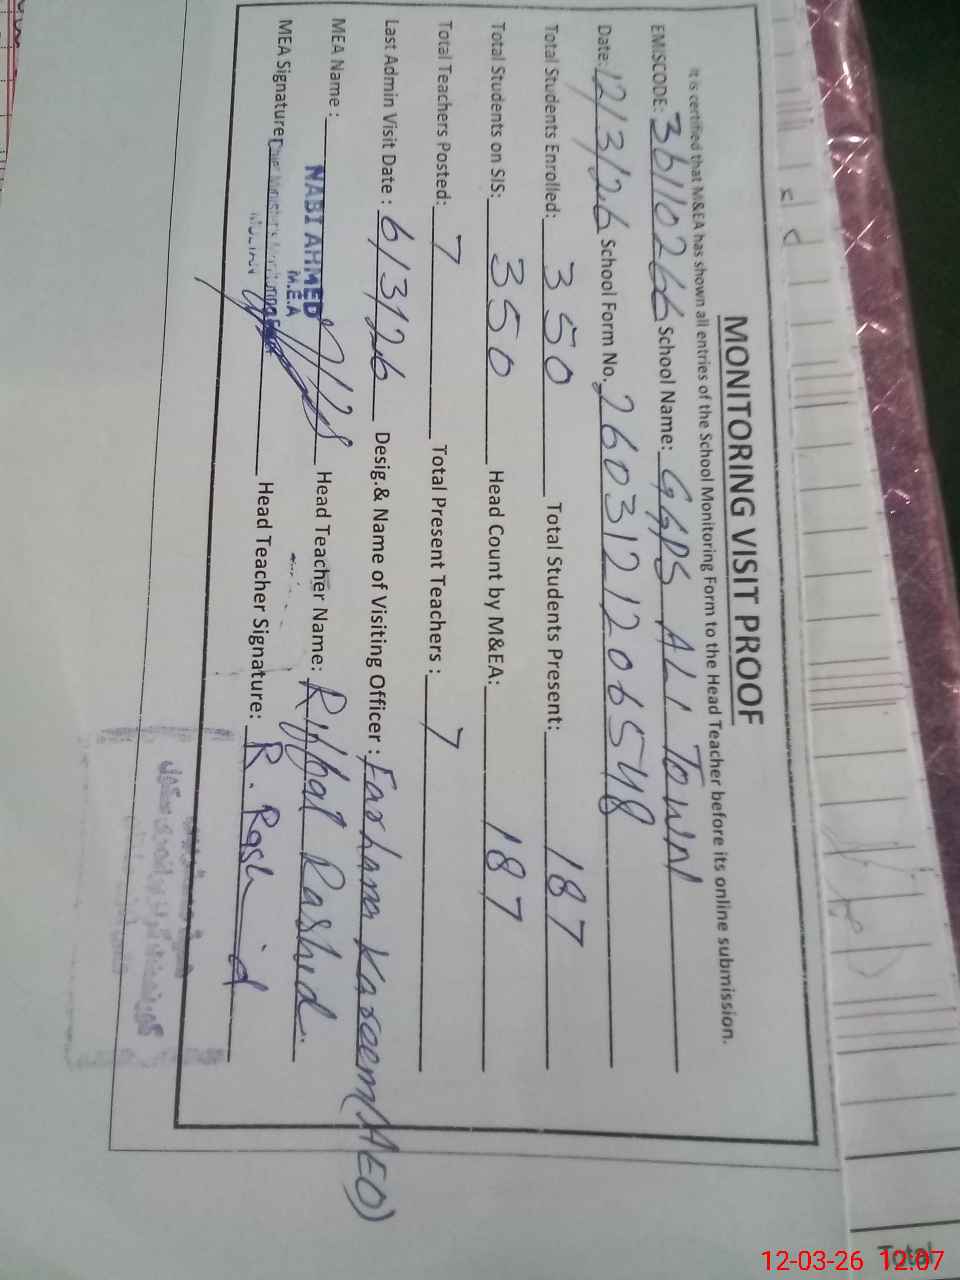 MONITORING VISIT PROOF
It is certified that M&EA has shown all entries of the School Monitoring Form to the Head Teacher before its online submission.
EMISCODE: 36110266 School Name: GGPS ALI TOWN
Date: 12/3/26 School Form No. 2603121206548
Total Students Enrolled: 350 Total Students Present: 187
Total Students on SIS: 350 Head Count by M&EA: 187
Total Teachers Posted: 7 Total Present Teachers : 7
Last Admin Visit Date : 6/3/26 Desig.& Name of Visiting Officer : Farham Kareem (AEO)
MEA Name : NABI AHMED Head Teacher Name: Riffat Rashid.
M.E.A
MEA Signature: Head Teacher Signature: R. Rashid
MULTAN
Total
12-03-26 12:07